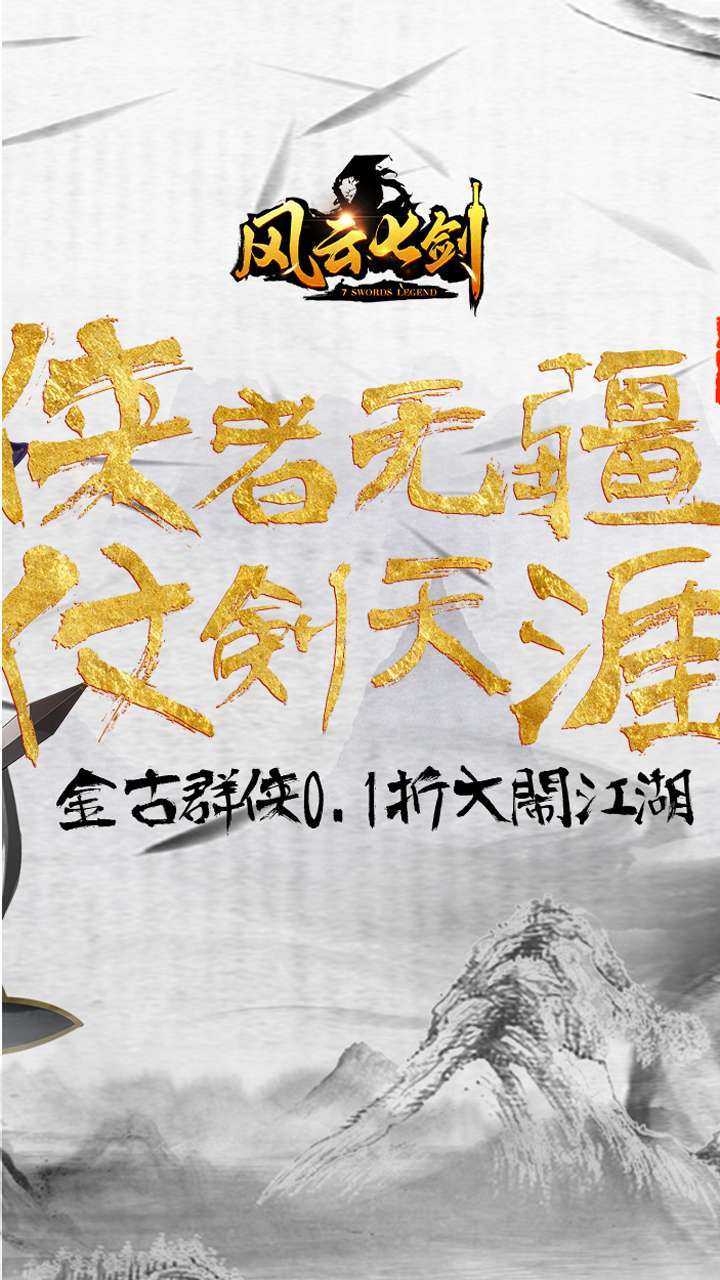 风云七剑
7 SWORDS LEGEND
侠者无疆
仗剑天涯
金古群侠0.1折大闹江湖